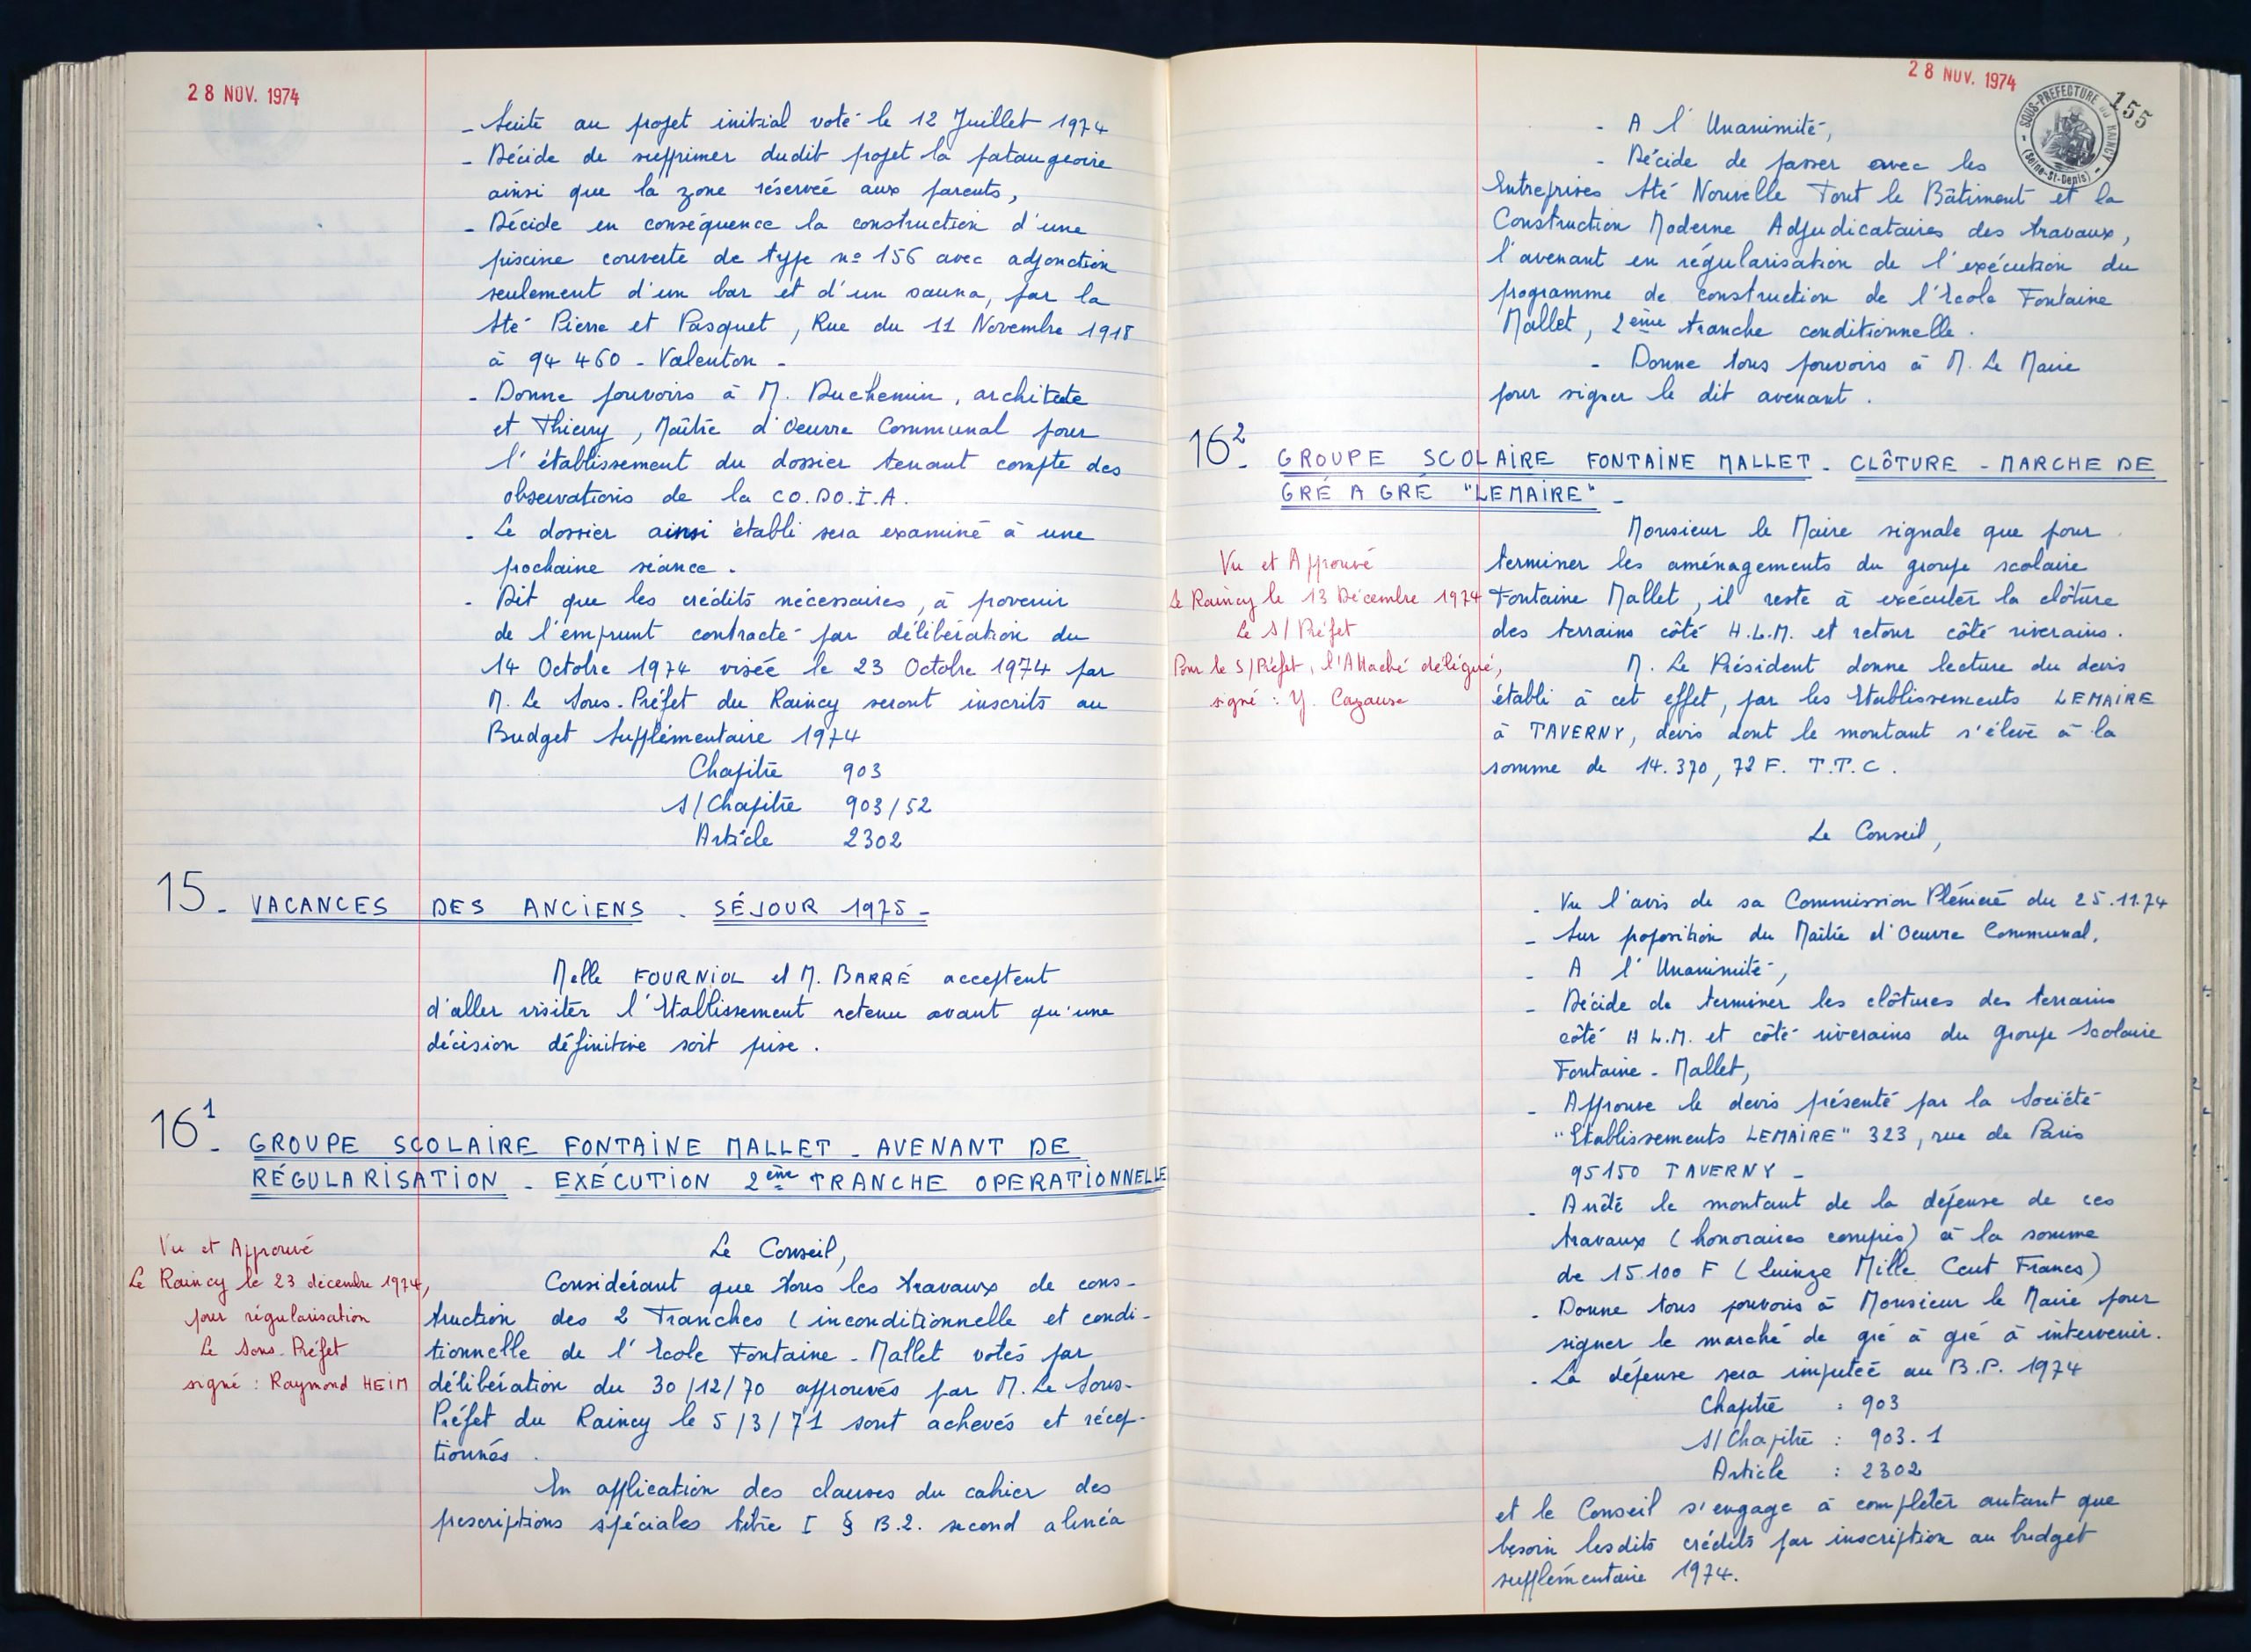 28 NOV. 1974
- Suite au projet initial voté le 12 Juillet 1974
- Décide de supprimer dudit projet la pataugeoire
ainsi que la zone réservée aux parents,
- Décide en conséquence la construction d'une
piscine couverte de type n° 156 avec adjonction
seulement d'un bar et d'un sauna, par la
Sté Pierre et Pasquet, Rue du 11 Novembre 1918
à 94 460 - Valenton -
- Donne pouvoirs à M. Duchemin, architecte
et Thierry, Maître d'Oeuvre Communal pour
l'établissement du dossier tenant compte des
observations de la CO.DO.I.A.
- Le dossier ainsi établi sera examiné à une
prochaine séance.
- Dit que les crédits nécessaires, à provenir
de l'emprunt contracté par délibération du
14 Octobre 1974 visée le 23 Octobre 1974 par
M. Le Sous-Préfet du Raincy seront inscrits au
Budget Supplémentaire 1974
Chapitre 903
S/Chapitre 903/52
Article 2302
15 - VACANCES DES ANCIENS - SÉJOUR 1975 -
Melle FOURNIOL et M. BARRÉ acceptent
d'aller visiter l'Etablissement retenu avant qu'une
décision définitive soit prise.
16¹ - GROUPE SCOLAIRE FONTAINE MALLET - AVENANT DE
RÉGULARISATION - EXÉCUTION 2ème TRANCHE OPERATIONNELLE
Vu et Approuvé
Le Raincy le 23 décembre 1974,
pour régularisation
Le Sous-Préfet
signé : Raymond HEIM
Le Conseil,
Considérant que tous les travaux de cons-
truction des 2 Tranches (inconditionnelle et condi-
tionnelle de l'Ecole Fontaine-Mallet votés par
délibération du 30/12/70 approuvés par M. Le Sous-
Préfet du Raincy le 5/3/71 sont achevés et récep-
tionnés.
En application des clauses du cahier des
prescriptions spéciales titre I § B.2. second alinéa
28 NOV. 1974
SOUS-PREFECTURE DU RAINCY
(Seine-St-Denis)
155
- A l'Unanimité,
- Décide de passer avec les
Entreprises Sté Nouvelle Tout le Bâtiment et la
Construction Moderne Adjudicataires des travaux,
l'avenant en régularisation de l'exécution du
programme de construction de l'Ecole Fontaine
Mallet, 2ème tranche conditionnelle.
- Donne tous pouvoirs à M. Le Maire
pour signer le dit avenant.
16² - GROUPE SCOLAIRE FONTAINE MALLET - CLÔTURE - MARCHE DE
GRÉ A GRE "LEMAIRE" -
Vu et Approuvé
Le Raincy le 13 Décembre 1974
Le S/Préfet
Pour le S/Préfet, l'Attaché délégué,
signé : Y. Cazaux
Monsieur le Maire signale que pour
terminer les aménagements du groupe scolaire
Fontaine Mallet, il reste à exécuter la clôture
des terrains côté H.L.M. et retour côté riverains.
M. Le Président donne lecture du devis
établi à cet effet, par les Etablissements LEMAIRE
à TAVERNY, devis dont le montant s'élève à la
somme de 14.370,72 F. T.T.C.
Le Conseil,
- Vu l'avis de sa Commission Plénière du 25.11.74
- Sur proposition du Maître d'Oeuvre Communal.
- A l'Unanimité,
- Décide de terminer les clôtures des terrains
côté H L.M. et côté riverains du Groupe Scolaire
Fontaine - Mallet,
- Approuve le devis présenté par la Société
"Etablissements LEMAIRE" 323, rue de Paris
95150 TAVERNY -
- Arrêté le montant de la dépense de ces
travaux (honoraires compris) à la somme
de 15.100 F (Quinze Mille Cent Francs)
- Donne tous pouvoirs à Monsieur le Maire pour
signer le marché de gré à gré à intervenir.
- La dépense sera imputée au B.P. 1974
Chapitre : 903
S/Chapitre : 903.1
Article : 2302
et le Conseil s'engage à compléter autant que
besoin lesdits crédits par inscription au budget
supplémentaire 1974.